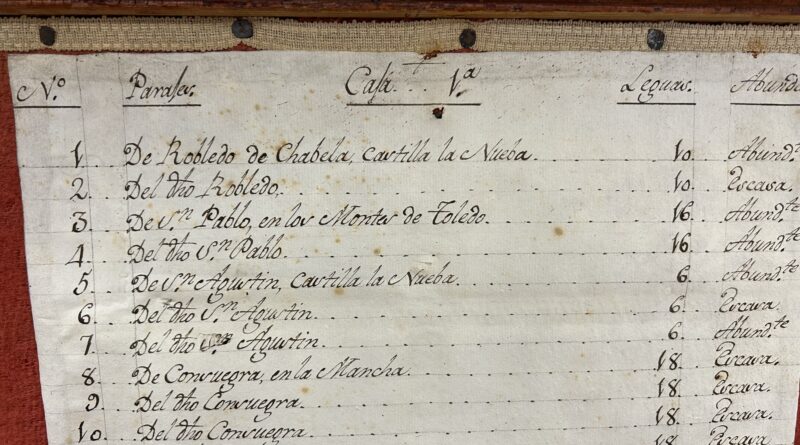 N.º Parajes. Casa 1.ª Leguas. Abund
1. De Robledo de Chabela, Castilla la Nueba. 10. Abund.te
2. Del dho Robledo. 10. Escasa.
3. De S.n Pablo, en los Montes de Toledo. 16. Abund.te
4. Del dho S.n Pablo. 16. Abund.te
5. De S.n Agustin, Castilla la Nueba. 6. Abund.te
6. Del dho S.n Agustin. 6. Escasa.
7. Del dho S.n Agustin. 6. Abund.te
8. De Consuegra, en la Mancha. 18. Escasa.
9. Del dho Consuegra. 18. Escasa.
10. Del dho Consuegra. 18. Escasa.